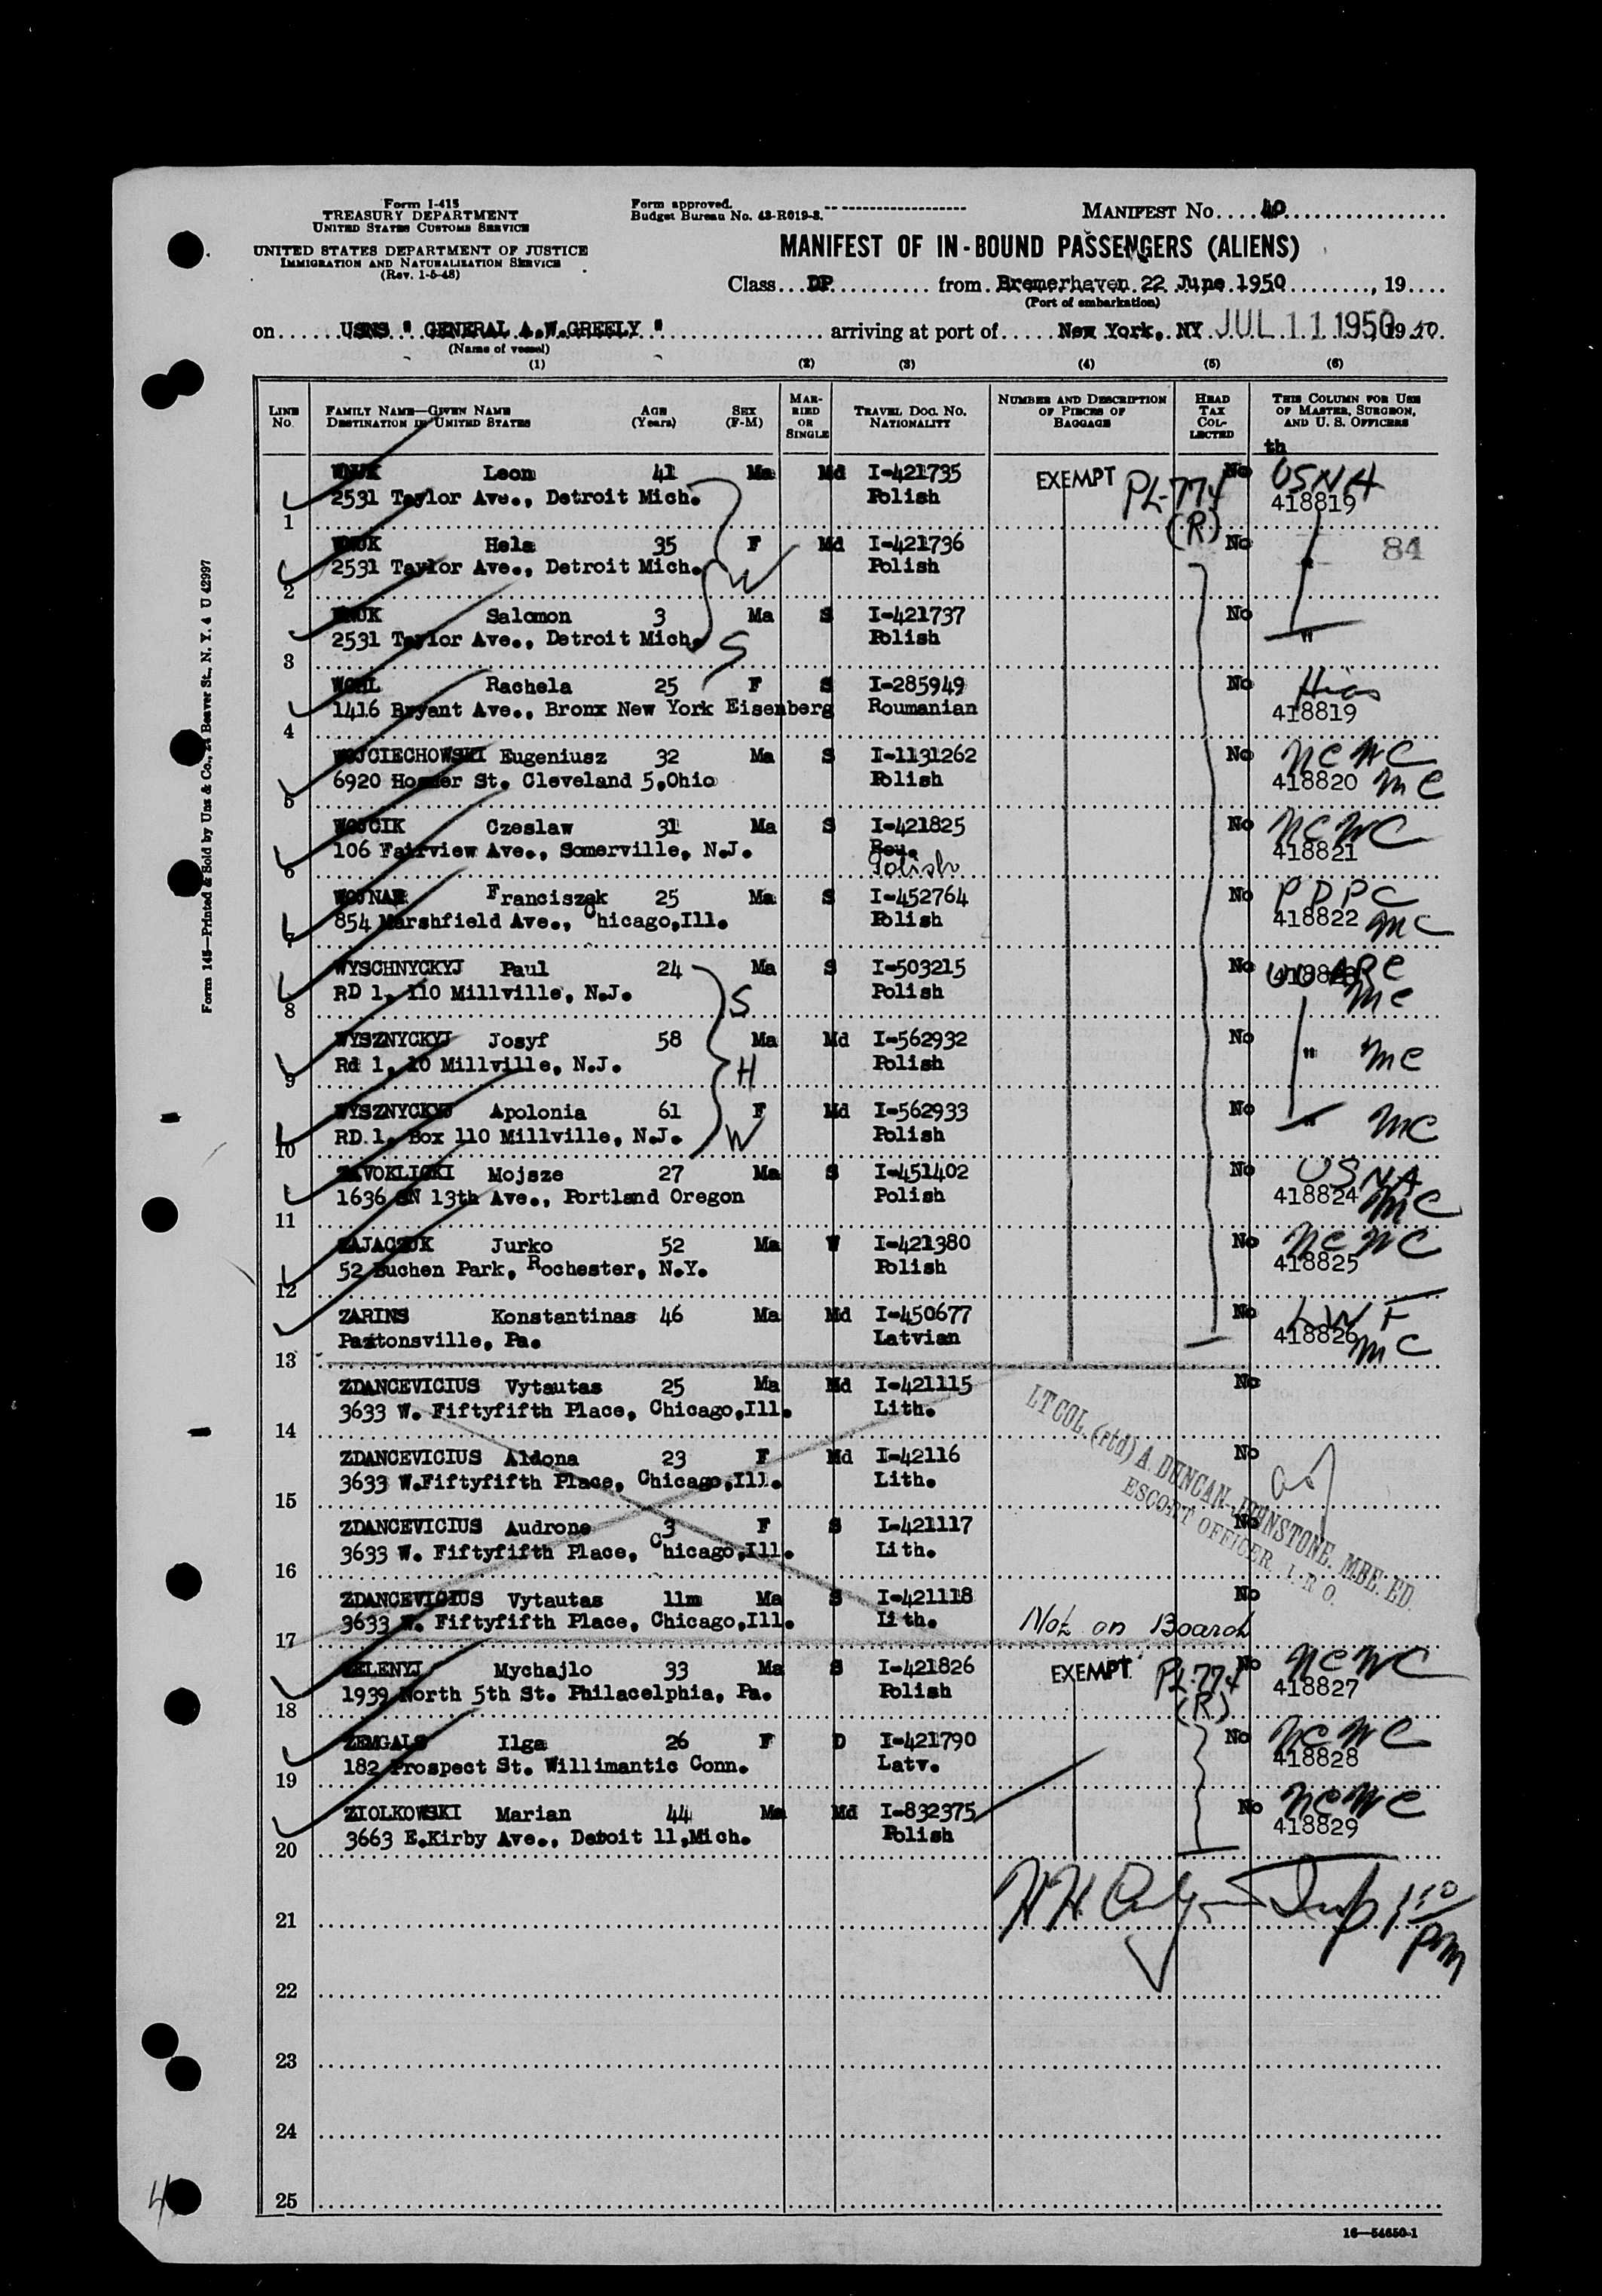 Form I-415
TREASURY DEPARTMENT
UNITED STATES CUSTOMS SERVICE
UNITED STATES DEPARTMENT OF JUSTICE
IMMIGRATION AND NATURALIZATION SERVICE
(Rev. 1-5-48)
Form approved.
Budget Bureau No. 43-R019-3.
MANIFEST No. 40
MANIFEST OF IN-BOUND PASSENGERS (ALIENS)
Class DP from Bremerhaven 22 June 1950, 19
(Port of embarkation)
on USNS " GENERAL A.W.GREELY " arriving at port of New York, NY JUL 11 1950, 1950.
(Name of vessel)
(1) (2) (3) (4) (5) (6)
LINE No. FAMILY NAME—GIVEN NAME DESTINATION IN UNITED STATES AGE (Years) SEX (F-M) MARRIED OR SINGLE TRAVEL DOC. NO. NATIONALITY NUMBER AND DESCRIPTION OF PIECES OF BAGGAGE HEAD TAX COLLECTED THIS COLUMN FOR USE OF MASTER, SURGEON, AND U. S. OFFICERS
th
WNUK Leon 41 Ma Md I-421735 EXEMPT PL-774 (R) No USNA
1 2531 Taylor Ave., Detroit Mich. Polish 418819
WNUK Hela 35 F Md I-421736 No 84
2 2531 Taylor Ave., Detroit Mich. W Polish "
WNUK Salomon 3 Ma S I-421737 No
3 2531 Taylor Ave., Detroit Mich. S Polish "
WOHL Rachela 25 F S I-285949 No Hias
4 1416 Bryant Ave., Bronx New York Eisenberg Roumanian 418819
WOJCIECHOWSKI Eugeniusz 32 Ma S I-1131262 No NCWC
5 6920 Hosmer St. Cleveland 5,Ohio Polish 418820 MC
WOJCIK Czeslaw 31 Ma S I-421825 No NCWC
6 106 Fairview Ave., Somerville, N.J. Rou. Polish 418821
WOJNAR Franciszek 25 Ma S I-452764 No PDPC
7 854 Marshfield Ave., Chicago,Ill. Polish 418822 MC
WYSCHNYCKYJ Paul 24 Ma S I-503215 No
8 RD 1, 110 Millville, N.J. S Polish MC
WYSZNYCKYJ Josyf 58 Ma Md I-562932 No
9 Rd 1, 10 Millville, N.J. H Polish " MC
WYSZNYCKYJ Apolonia 61 F Md I-562933 No
10 RD.1, Box 110 Millville, N.J. W Polish " MC
ZAVOKLICKI Mojsze 27 Ma S I-451402 No USNA
11 1636 SN 13th Ave., Portland Oregon Polish 418824 MC
ZAJACZUK Jurko 52 Ma W I-421380 No NCWC
12 52 Buchen Park, Rochester, N.Y. Polish 418825
ZARINS Konstantinas 46 Ma Md I-450677 No LWF
13 Paxtonsville, Pa. Latvian 418826 MC
ZDANCEVICIUS Vytautas 25 Ma Md I-421115 No
14 3633 W. Fiftyfifth Place, Chicago,Ill. Lith.
ZDANCEVICIUS Aldona 23 F Md I-42116 No
15 3633 W.Fiftyfifth Place, Chicago,Ill. Lith.
ZDANCEVICIUS Audrone 3 F S I-421117 No
16 3633 W. Fiftyfifth Place, Chicago,Ill. Lith.
LT COL. (rtd) A. DUNCAN-JOHNSTONE. MBE. ED.
ESCORT OFFICER. I. R O.
ZDANCEVICIUS Vytautas 11m Ma S I-421118 No
17 3633 W. Fiftyfifth Place, Chicago,Ill. Lith. Not on Board
ZELENYJ Mychajlo 33 Ma S I-421826 EXEMPT PL-774 (R) No NCWC
18 1939 North 5th St. Philacelphia, Pa. Polish 418827
ZEMGALS Ilga 26 F D I-421790 No NCWC
19 182 Prospect St. Willimantic Conn. Latv. 418828
ZIOLKOWSKI Marian 44 Ma Md I-832375 No NCWC
20 3663 E.Kirby Ave., Detoit 11,Mich. Polish 418829
21
PM
22
23
24
25
16—54650-1
Form 145—Printed & Sold by Uns & Co., 24 Beaver St., N. Y. 4 U 42997
4